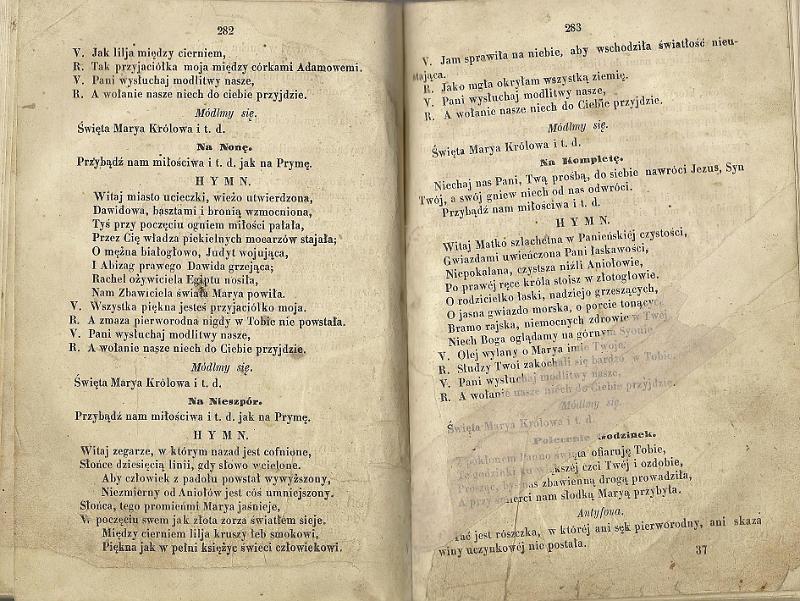 282
V. Jak lilja między cierniem,
R. Tak przyjaciółka moja między córkami Adamowemi.
V. Pani wysłuchaj modlitwy nasze,
R. A wołanie nasze niech do ciebie przyjdzie.
Módlmy się.
Święta Marya Królowa i t. d.
Na Nonę.
Przybądź nam miłościwa i t. d. jak na Prymę.
HYMN.
Witaj miasto ucieczki, wieżo utwierdzona,
Dawidowa, basztami i bronią wzmocniona,
Tyś przy poczęciu ogniem miłości pałała,
Przez Cię władza piekielnych mocarzów stajała;
O mężna białogłowo, Judyt wojująca,
I Abizag prawego Dawida grzejąca;
Rachel ożywiciela Egiptu nosiła,
Nam Zbawiciela świata Marya powiła.
V. Wszystka piękna jesteś przyjaciółko moja.
R. A zmaza pierworodna nigdy w Tobie nie powstała.
V. Pani wysłuchaj modlitwy nasze,
R. A wołanie nasze niech do Ciebie przyjdzie.
Módlmy się.
Święta Marya Królowa i t. d.
Na Nieszpór.
Przybądź nam miłościwa i t. d. jak na Prymę.
HYMN.
Witaj zegarze, w którym nazad jest cofnione,
Słońce dziesięcią linii, gdy słowo wcielone.
Aby człowiek z padołu powstał wywyższony,
Niezmierny od Aniołów jest cóś umniejszony.
Słońca, tego promieńmi Marya jaśnieje,
W poczęciu swem jak złota zorza światłem sieje.
Między cierniem lilja kruszy łeb smokowi,
Piękna jak w pełni księżyc świeci człowiekowi.
283
V. Jam sprawiła na niebie, aby wschodziła światłość nieu-
stająca.
R. Jako mgła okryłam wszystką ziemię.
V. Pani wysłuchaj modlitwy nasze,
R. A wołanie nasze niech do Ciebie przyjdzie.
Módlmy się.
Święta Marya Królowa i t. d.
Na Kompletę.
Niechaj nas Pani, Twą prośbą, do siebie nawróci Jezus, Syn
Twój, a swój gniew niech od nas odwróci.
Przybądź nam miłościwa i t. d.
HYMN.
Witaj Matko szlachetna w Panieńskiej czystości,
Gwiazdami uwieńczona Pani łaskawości,
Niepokalana, czystsza niźli Aniołowie,
Po prawéj ręce króla stoisz w złotogłowie.
O rodzicielko łaski, nadziejo grzeszących,
O jasna gwiazdo morska, o porcie tonących
Bramo rajska, niemocnych zdrowie w Twéj
Niech Boga oglądamy na górnym Syonie
V. Olej wylany o Marya imie Twoje.
R. Słudzy Twoi zakochali się bardzo w Tobie.
V. Pani wysłuchaj modlitwy nasze,
R. A wołanie nasze niech do Ciebie przyjdzie.
Módlmy się.
Święta Marya Królowa i t. d.
Polecenie Godzinek.
Z pokłonem Panno święta ofiaruję Tobie,
Te godzinki ku większej czci Twéj i ozdobie,
Prosząc, byś nas zbawienną drogą prowadziła,
A przy śmierci nam słodką Maryą przybyła.
Antyfona.
Tać jest rószczka, w któréj ani sęk pierworodny, ani skaza
winy uczynkowéj nie postała.
37